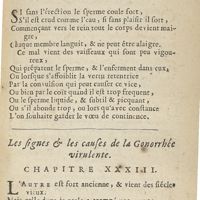 SI sans l'érection le sperme coule sort,
S'il est crud comme l'eau, si sans plaisir il sort,
Commençant vers le rein tout le corps devient maigre,
Chaque membre languit, & ne peut être alaigre.
Ce mal vient des vaisseaux qui sont peu vigoureux;
Qui préparent le sperme, & l'enferment dans eux;
Ou lorsque s'affoiblit la vertu retentrice
Par la convulsion qui peut causer ce vice;
Ou bien par le coït quand il est trop frequent,
Ou le sperme liquide, & subtil & picquant;
Ou s'il abonde trop, ou lorsqu'avec constance
L'on souhaite garder le vœu de continence.
Les signes & les causes de la Gonorrhée
virulente.
CHAPITRE XXXIII.
L'AUTRE est fort ancienne, & vient des siécles
vieux,